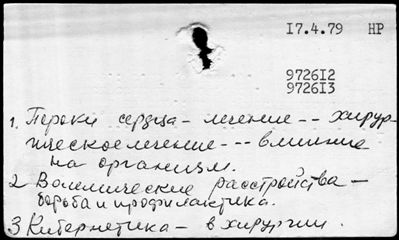 17.4.79 НР
972612
972613
1. Пороки сердца - лечение -- хирур-
гическое лечение - -- влияние
на организм.
2 Волемические расстройства -
борьба и профилактика.
3 Кибернетика - в хирургии.